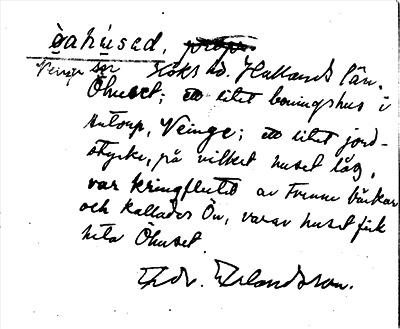 òahúsəd,
Veinge sn Höks hd. Hallands län.
Öhuset; ett litet boningshus i
Antorp, Veinge; ett litet jord-
stycke, på vilket huset låg,
var kringflutet av tvenne bäckar
och kallades Ön, varav huset fick
heta Öhuset
Thdr. Erlandsson.